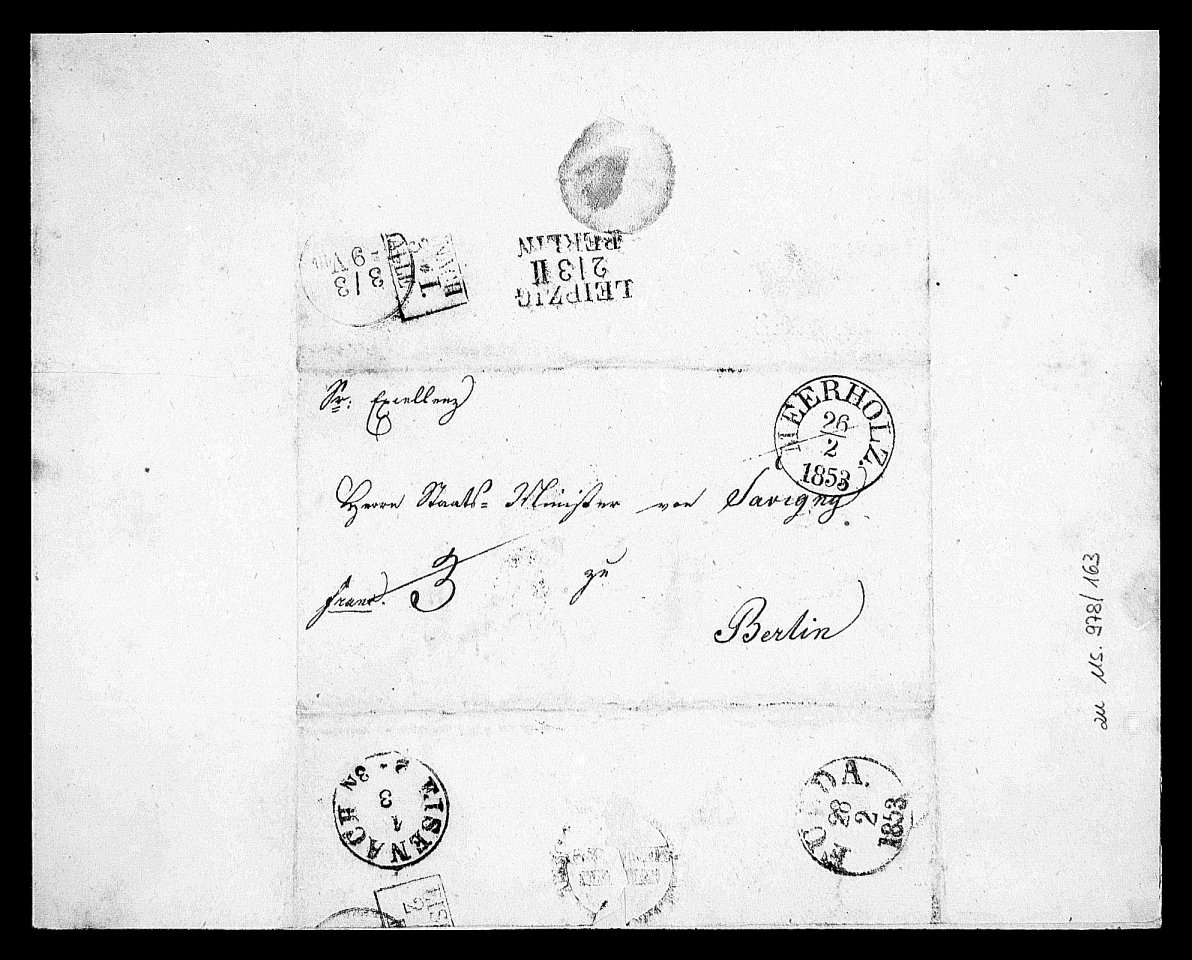 BERLIN
2|3 II
LEIPZIG
3/3
9 V
Sr: Excellenz
MEERHOLZ.
26/2
1853
Herrn Staats= Minister von Savigny.
franc. 3
zu
Berlin
zu Ms. 978/163
EISENACH
1 3
3N
FULDA.
28
2
1853